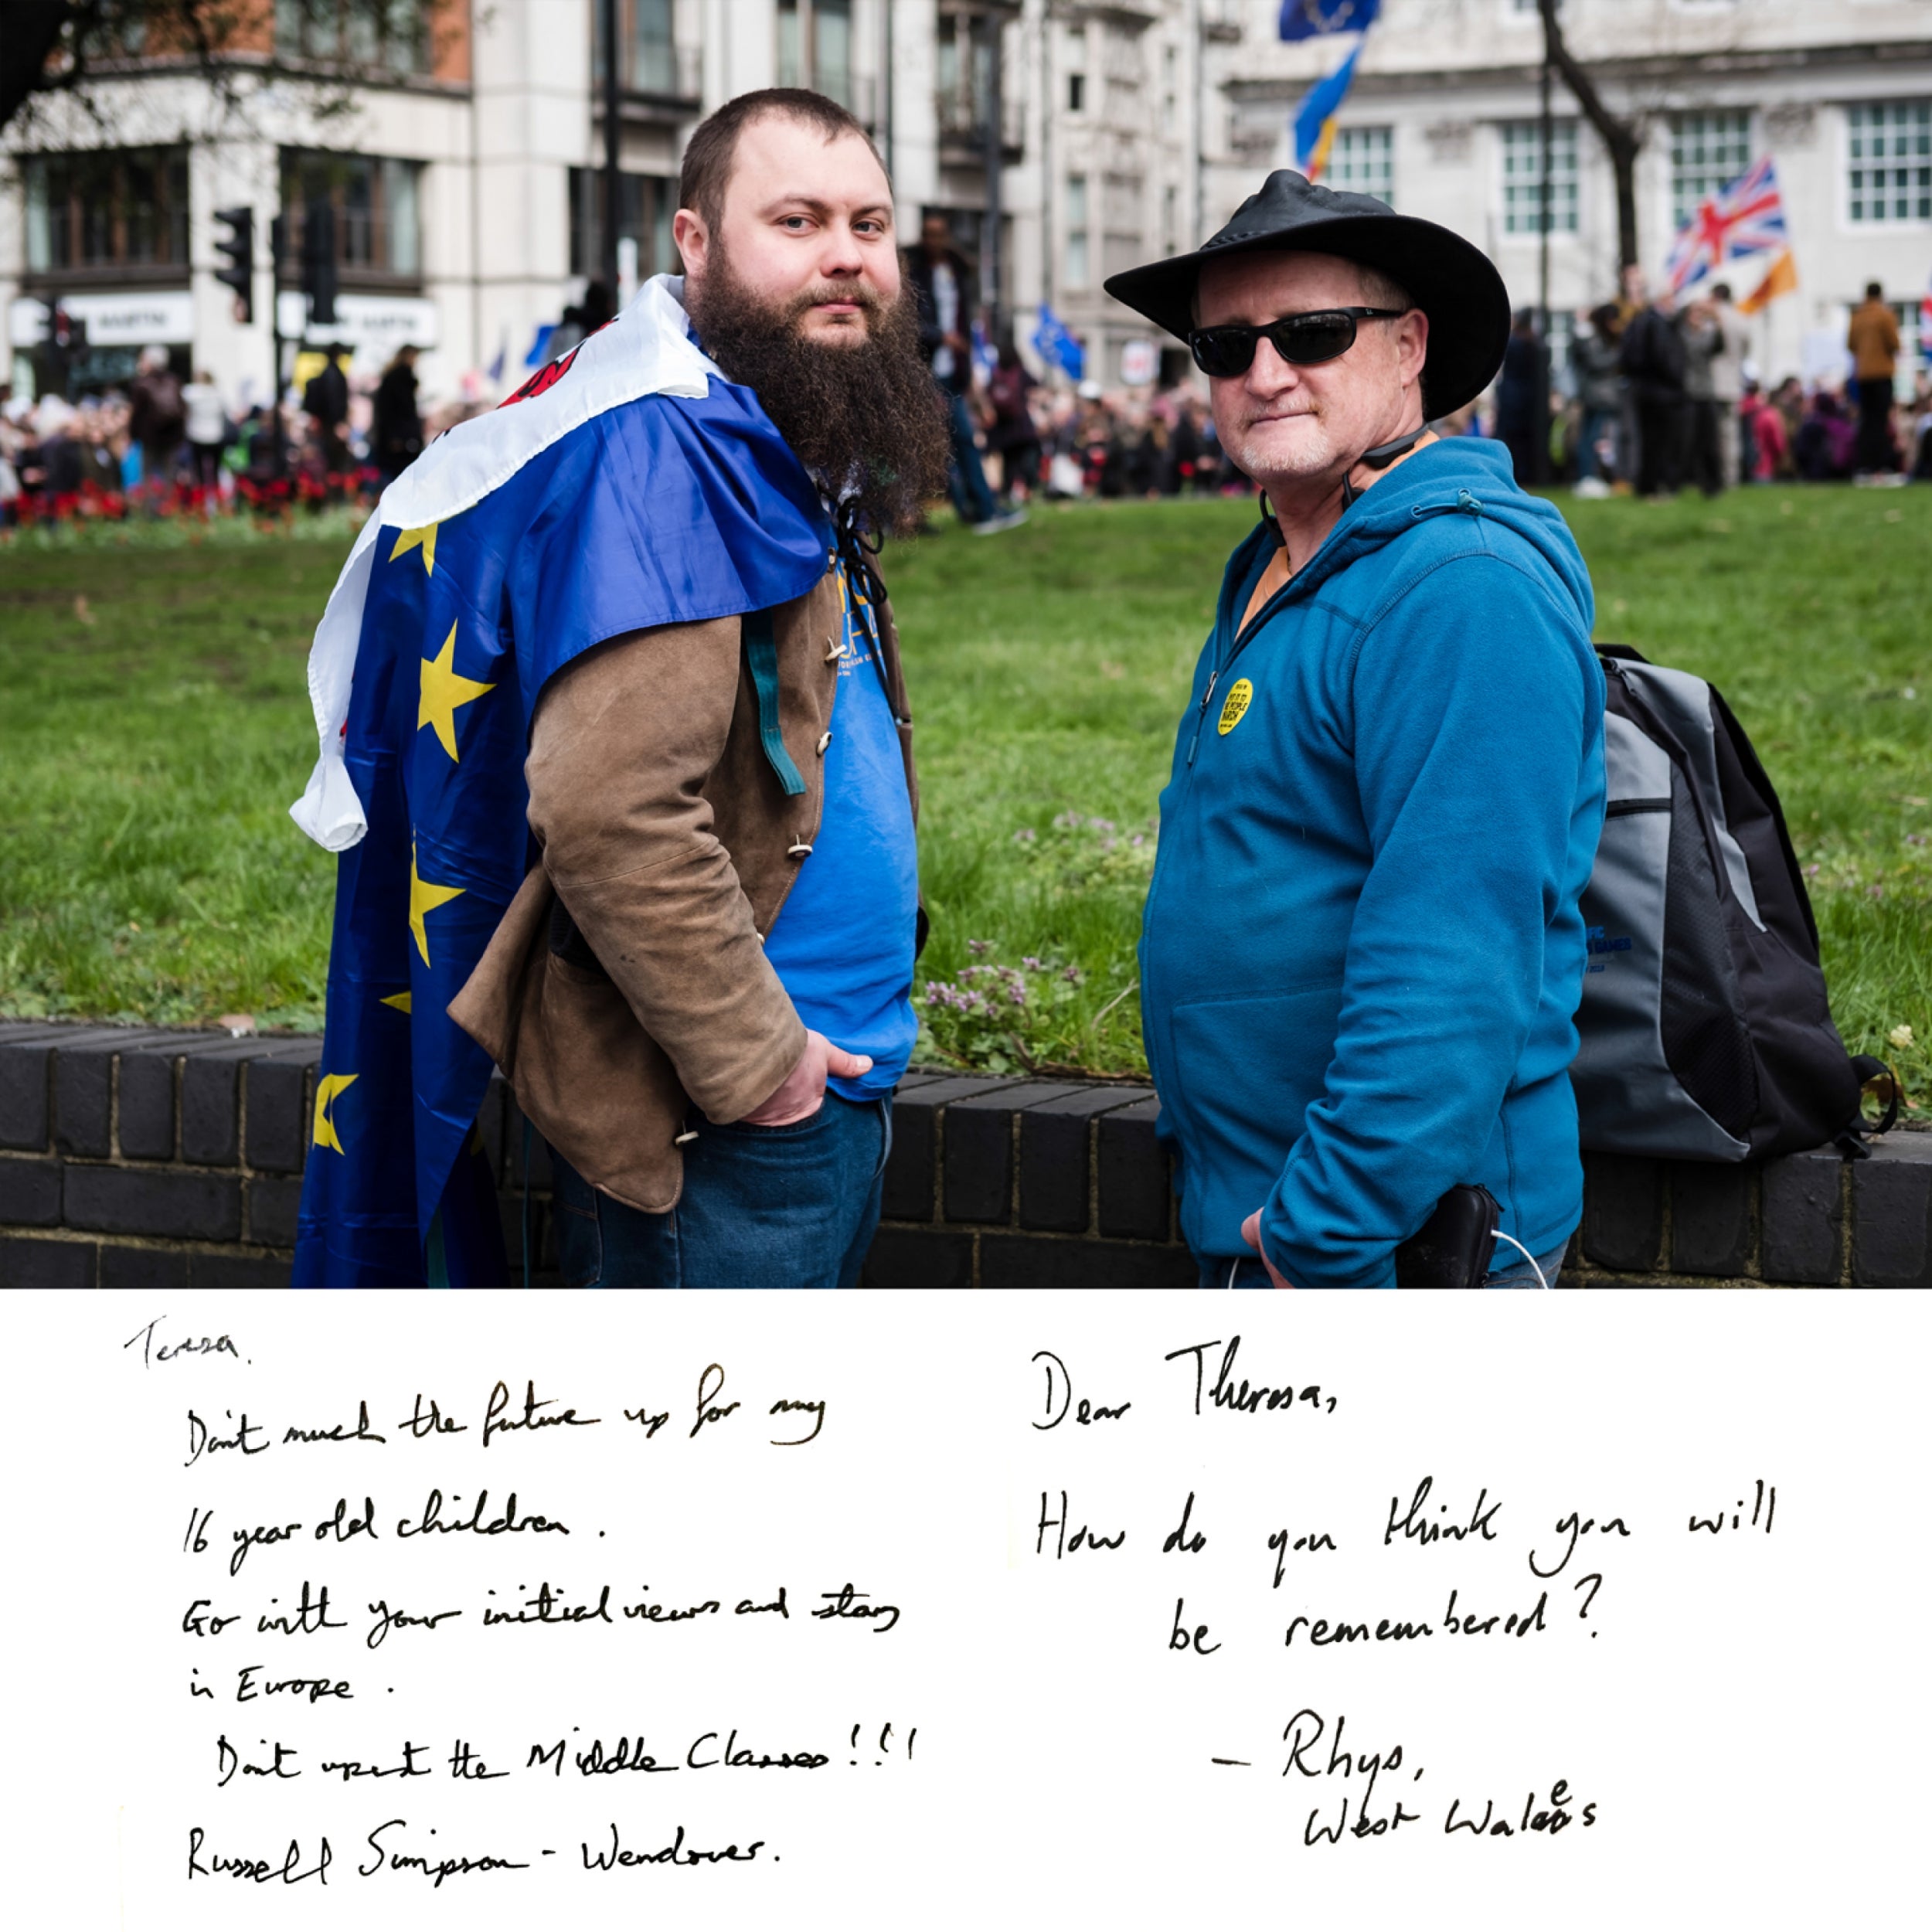 MARTIN
PEOPLE
MARCH
GAMES
Teresa.
Don't muck the future up for my
16 year old children.
Go with your initial views and stay
in Europe.
Don't upset the Middle Classes!!!
Russell Simpson - Wendover.
Dear Theresa,
How do you think you will
be remembered?
- Rhys,
West Wales